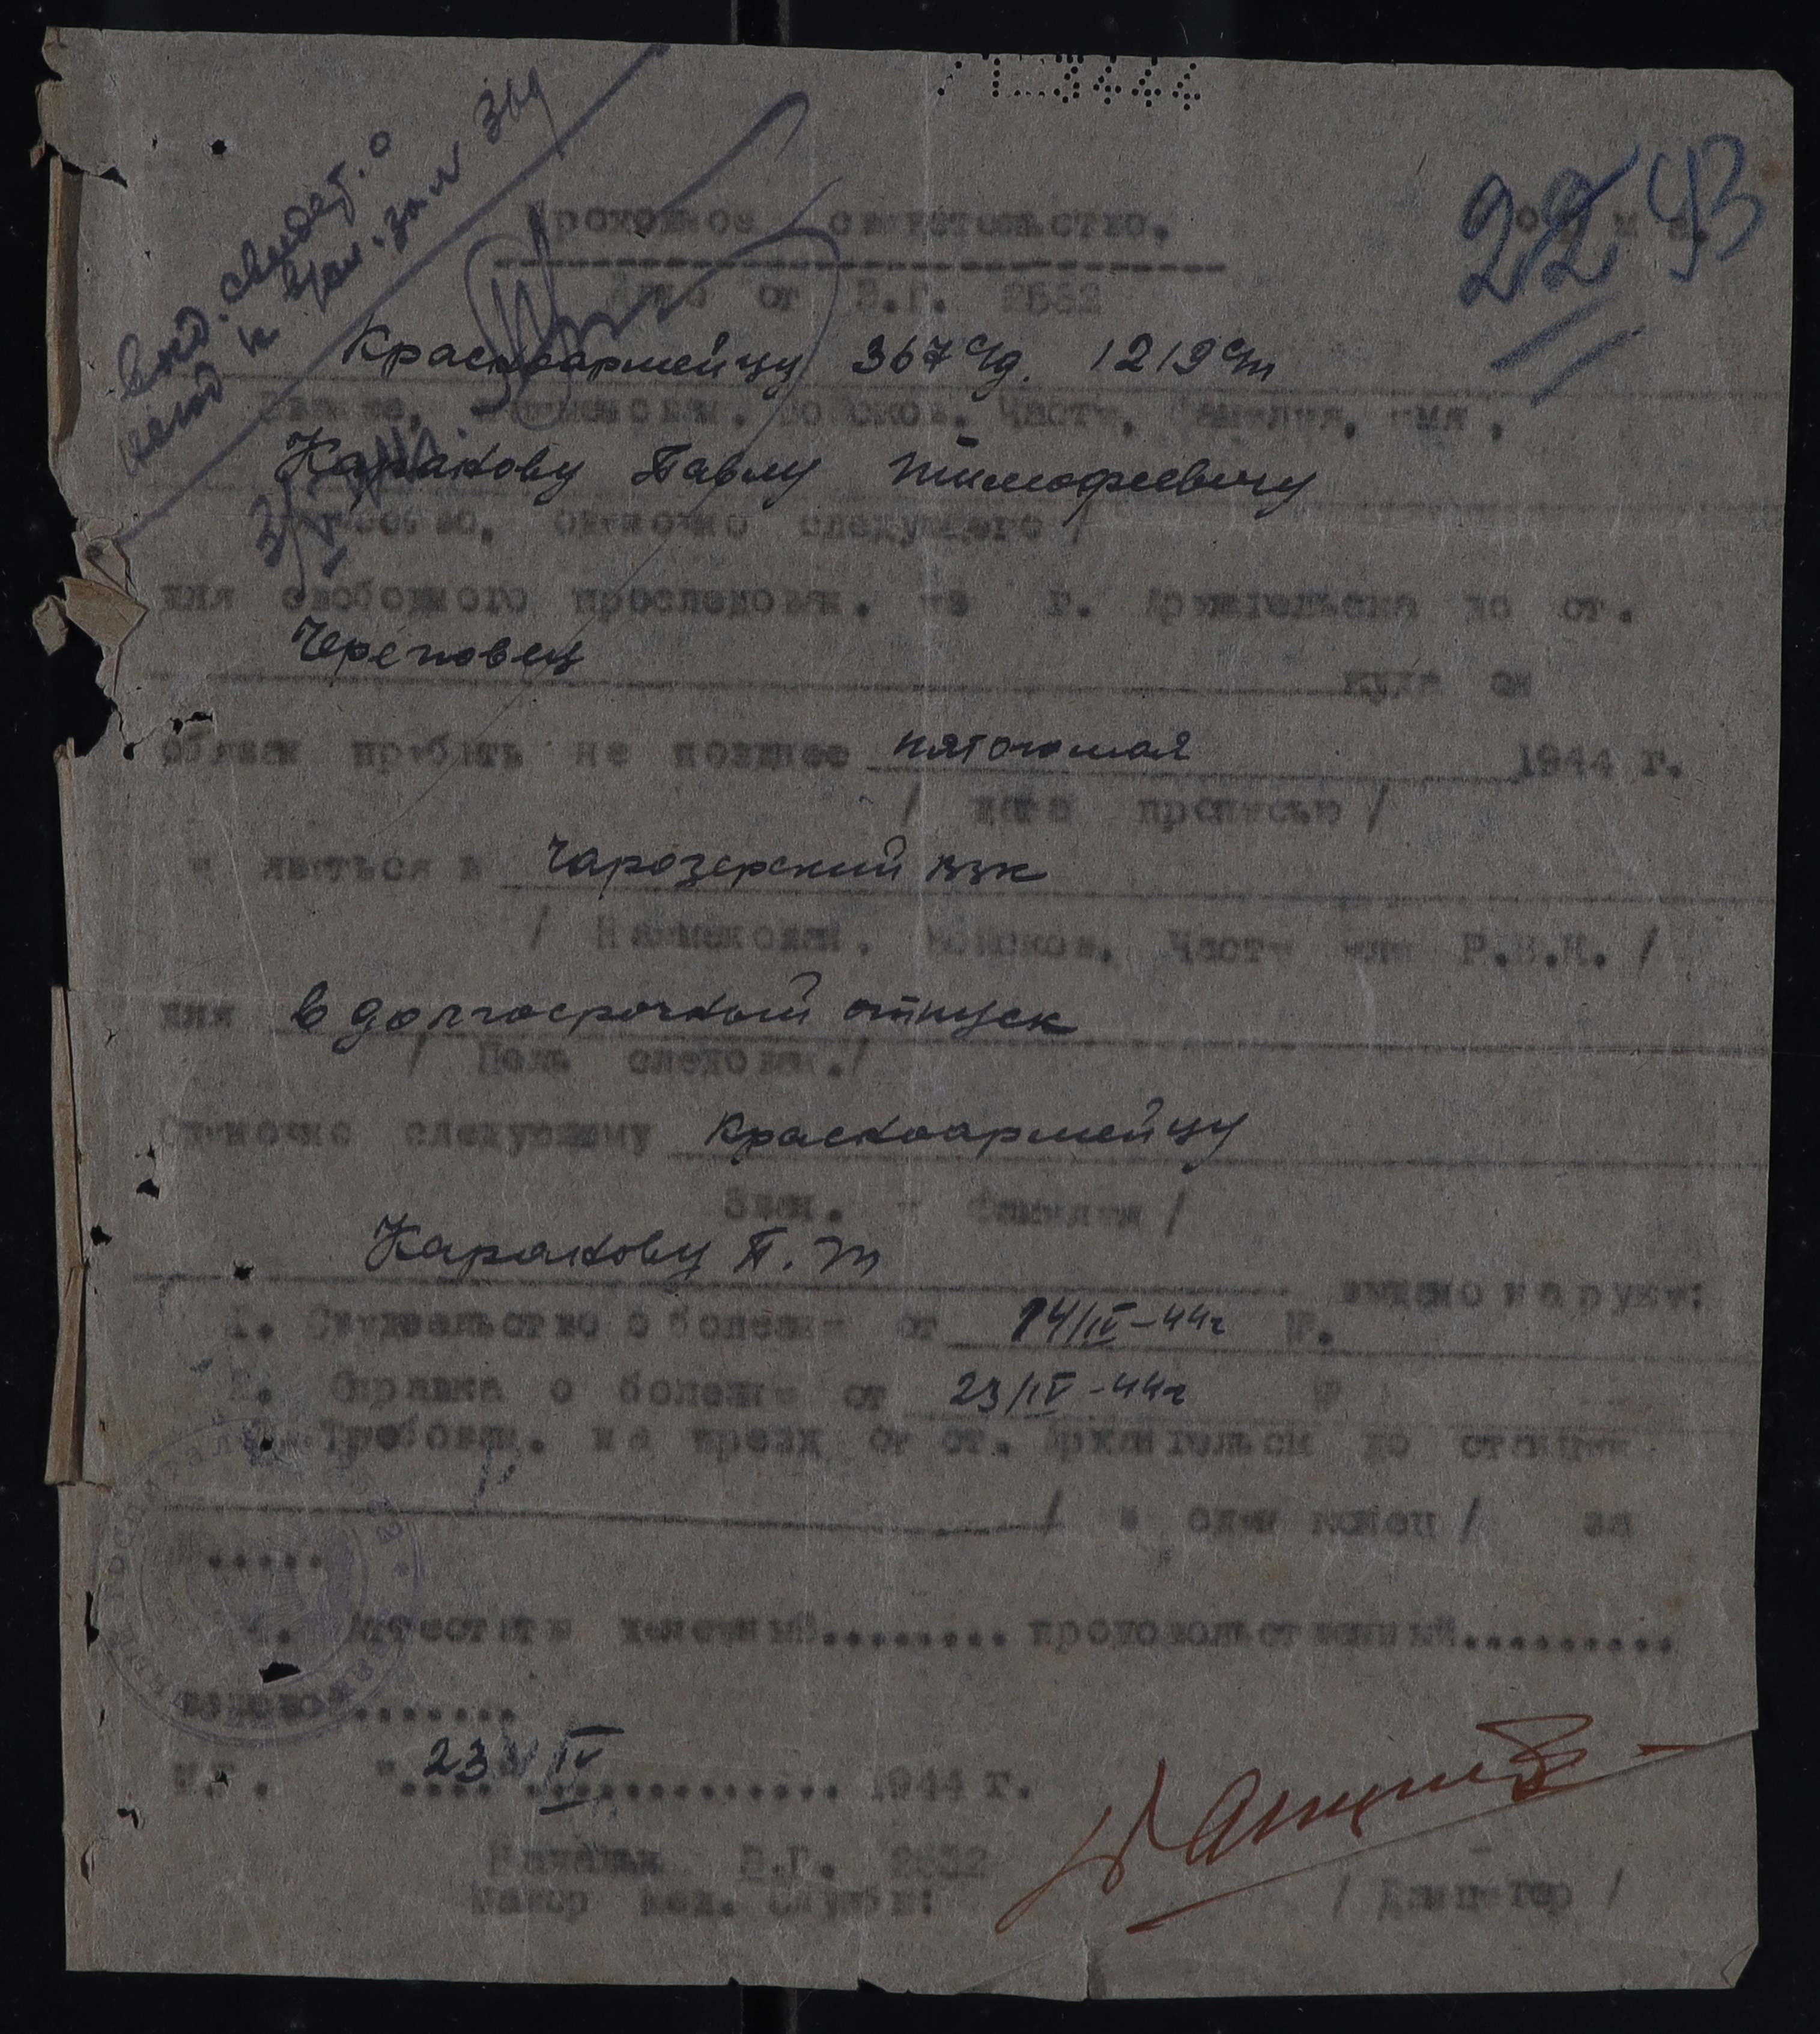 71-3444
22 93
Проходное свидетельство. Форма.
Дано от В.Г. 2532
Красноармейцу 367 с/д. 1219 с/п
Звание, наименован. войсков. части, фамилия, имя,
Каракову Павлу Тимофеевичу
отчество, одиночно следующего /
для свободного проследован. из г. Архангельска до ст.
Череповец
куда он
обязан прибыть не позднее пятого мая 1944 г.
/ дата прописью /
и явиться в Чарозерский РВК
/ Наименован. войсков. части или Р.В.К. /
для в долгосрочный отпуск
/ Цель следован. /
Одиночно следующему красноармейцу
Зван. и фамилия /
Каракову П. Т
выдано на руки:
1. Свидетельство о болезни от 14/IV-44г №.
2. Справка о болезни от 23/IV-44г №
Требован. на проезд от ст. Архангельск до станции
/ в один конец / за
№.....
4. Аттестаты денежный......... продовольственный..........
вещевой........
М.П. "23" IV 1944 г.
Начальн В.Г. 2532
Майор мед. службы: